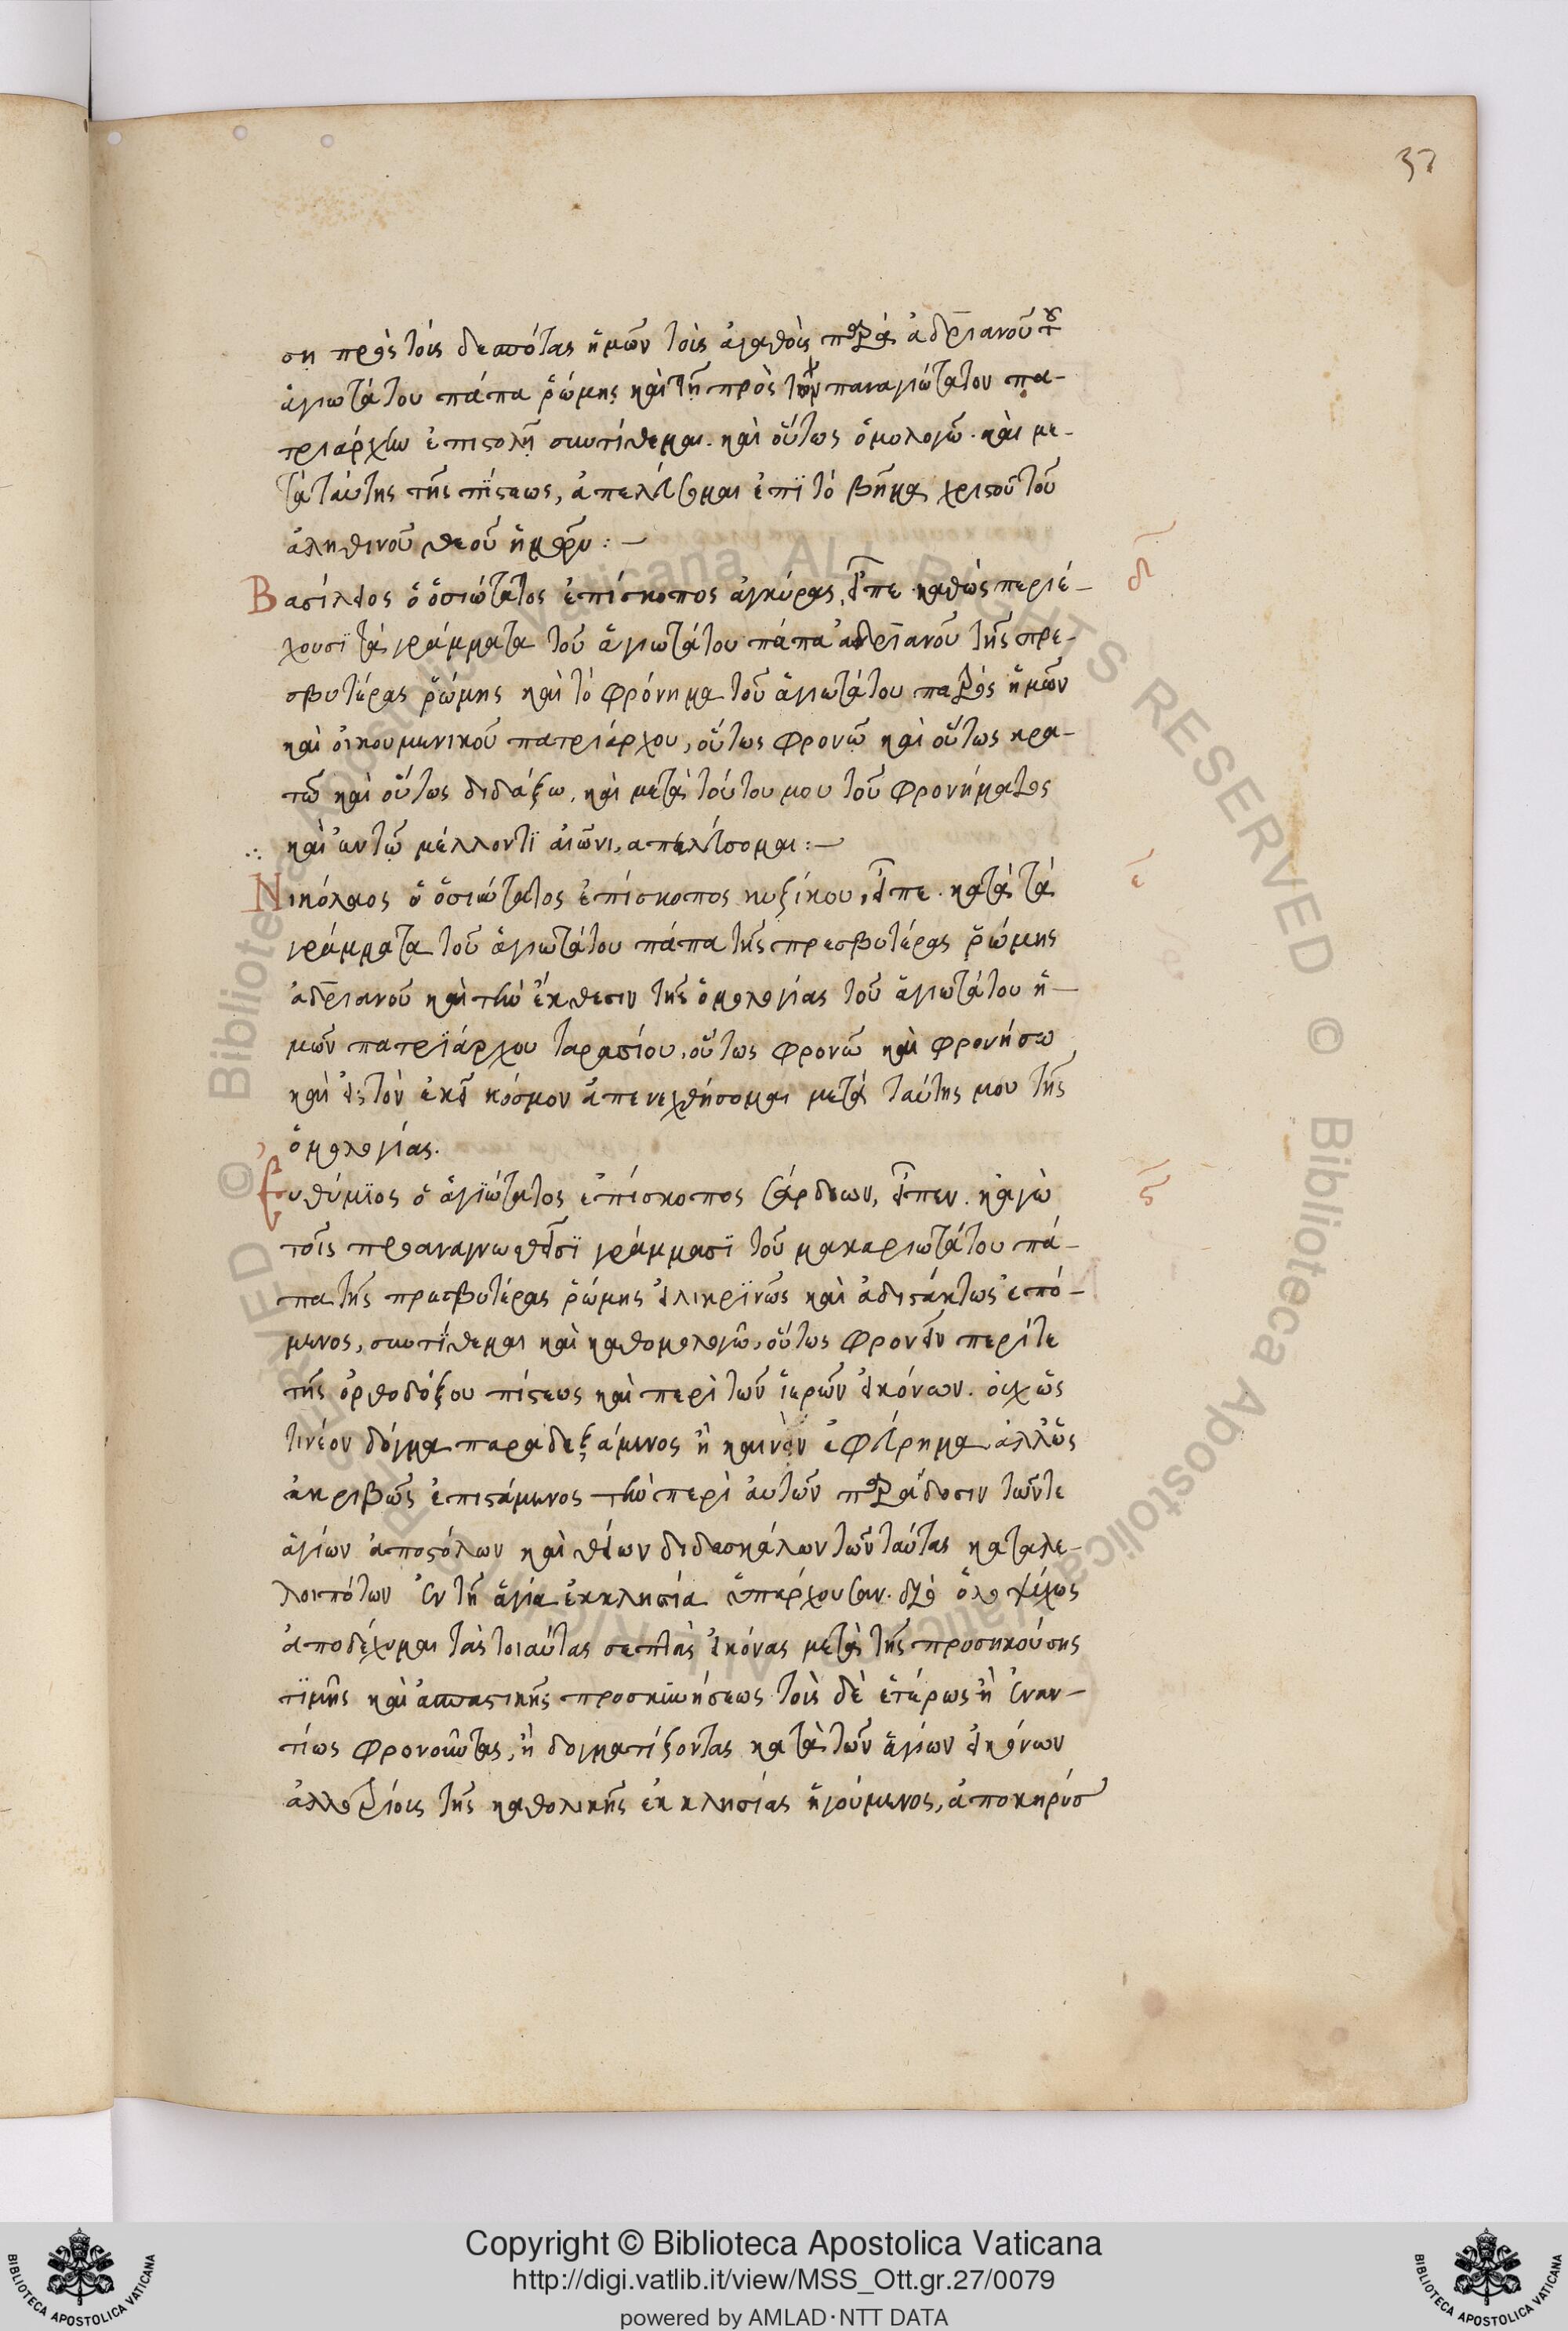 37
ση πρὸς τοὺς δεσπότας ἡμῶν τοὺς ἀγαθοὺς παρὰ ἀδριανοῦ τοῦ
ἁγιωτάτου πάπα ῥώμης καὶ τῇ πρὸς τὸν παναγιώτατον πα-
τριάρχην ἐπιστολῇ συντίθεμαι. καὶ οὕτως ὁμολογῶ. καὶ με-
τὰ ταύτης τῆς πίστεως, ἀπελεύσομαι ἐπὶ τὸ βῆμα χριστοῦ τοῦ
ἀληθινοῦ θεοῦ ἡμῶν:—
Βασίλειος ὁ ὁσιώτατος ἐπίσκοπος ἀγκύρας, εἶπε. καθὼς περιέ-
δ
χουσϊ τὰ γράμματα τοῦ ἁγιωτάτου πάπα ἀδριανοῦ τῆς πρε-
σβυτέρας ῥώμης καὶ τὸ φρόνημα τοῦ ἁγιωτάτου πατρὸς ἡμῶν
καὶ οἰκουμενικοῦ πατριάρχου, οὕτως φρονῶ καὶ οὕτως κρα-
τῶ καὶ οὕτως διδάξω, καὶ μετὰ τούτου μου τοῦ φρονήματος
καὶ ἐν τῷ μέλλοντϊ αἰῶνι, ἀπελεύσομαι:—
Νικόλαος ὁ ὁσιώτατος ἐπίσκοπος κυζίκου, εἶπε. κατὰ τὰ
ε
γράμματα τοῦ ἁγιωτάτου πάπα τῆς πρεσβυτέρας ῥώμης
ἀδριανοῦ καὶ τὴν ἔκθεσιν τῆς ὁμολογίας τοῦ ἁγιωτάτου ἡ—
μῶν πατρϊάρχου ταρασίου, οὕτως φρονῶ καὶ φρονήσω
καὶ εἰς τὸν ἐκεῖ κόσμον ἀπενεχθήσομαι μετὰ ταύτης μου τῆς
ὁμολογίας.
Εὐθύμϊος ὁ ἁγϊώτατος ἐπίσκοπος σάρδεων, εἶπεν. κἀγὼ
ς
τοῖς προαναγνωσθεῖσϊ γράμμασϊ τοῦ μακαριωτάτου πά-
πα τῆς πρεσβυτέρας ῥώμης εἰλικρϊνῶς καὶ ἀδιστάκτως ἑπό-
μενος, συντϊθεμαι καὶ καθομολογῶ, οὕτως φρονεῖν περίτε
τῆς ὀρθοδόξου πίστεως καὶ περὶ τῶν ἱερῶν εἰκόνων. οὐχ ὥς
τι νέον δόγμα παραδεξάμενος ἢ καινὸν ἐφεύρημα ἀλλ' ὡς
ἀκριβῶς ἐπιστάμενος τὴν περὶ αὐτῶν παράδοσιν τῶντε
ἁγίων ἀποστόλων καὶ θείων διδασκάλων τῶν ταύτας καταλε-
λοιπότων ἐν τῇ ἁγία ἐκκλησία ὑπάρχουσαν. διὸ ὁλοψύχως
ἀποδέχομαι τὰς τοιαύτας σεπτὰς εἰκόνας μετὰ τῆς προσηκούσης
τϊμῆς καὶ ἀσπαστικῆς προσκυνήσεως τοὺς δὲ ἑτέρως ἢ ἐναν-
τίως φρονοῦντας, ἢ δογματίζοντας κατὰ τῶν ἁγίων εἰκόνων
ἀλλοτρίους τῆς καθολικῆς ἐκκλησίας ἡγούμενος, ἀποκηρύσ
Copyright © Biblioteca Apostolica Vaticana
http://digi.vatlib.it/view/MSS_Ott.gr.27/0079
powered by AMLAD·NTT DATA